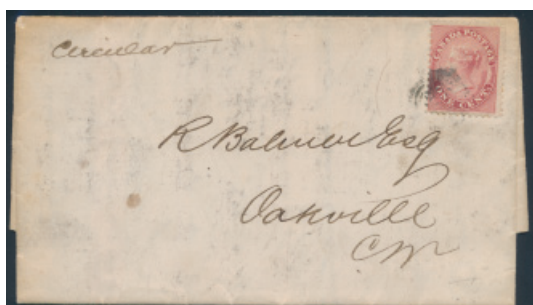 Circular
CANADA POSTAGE
ONE CENT
R Balmer Esq
Oakville
CW